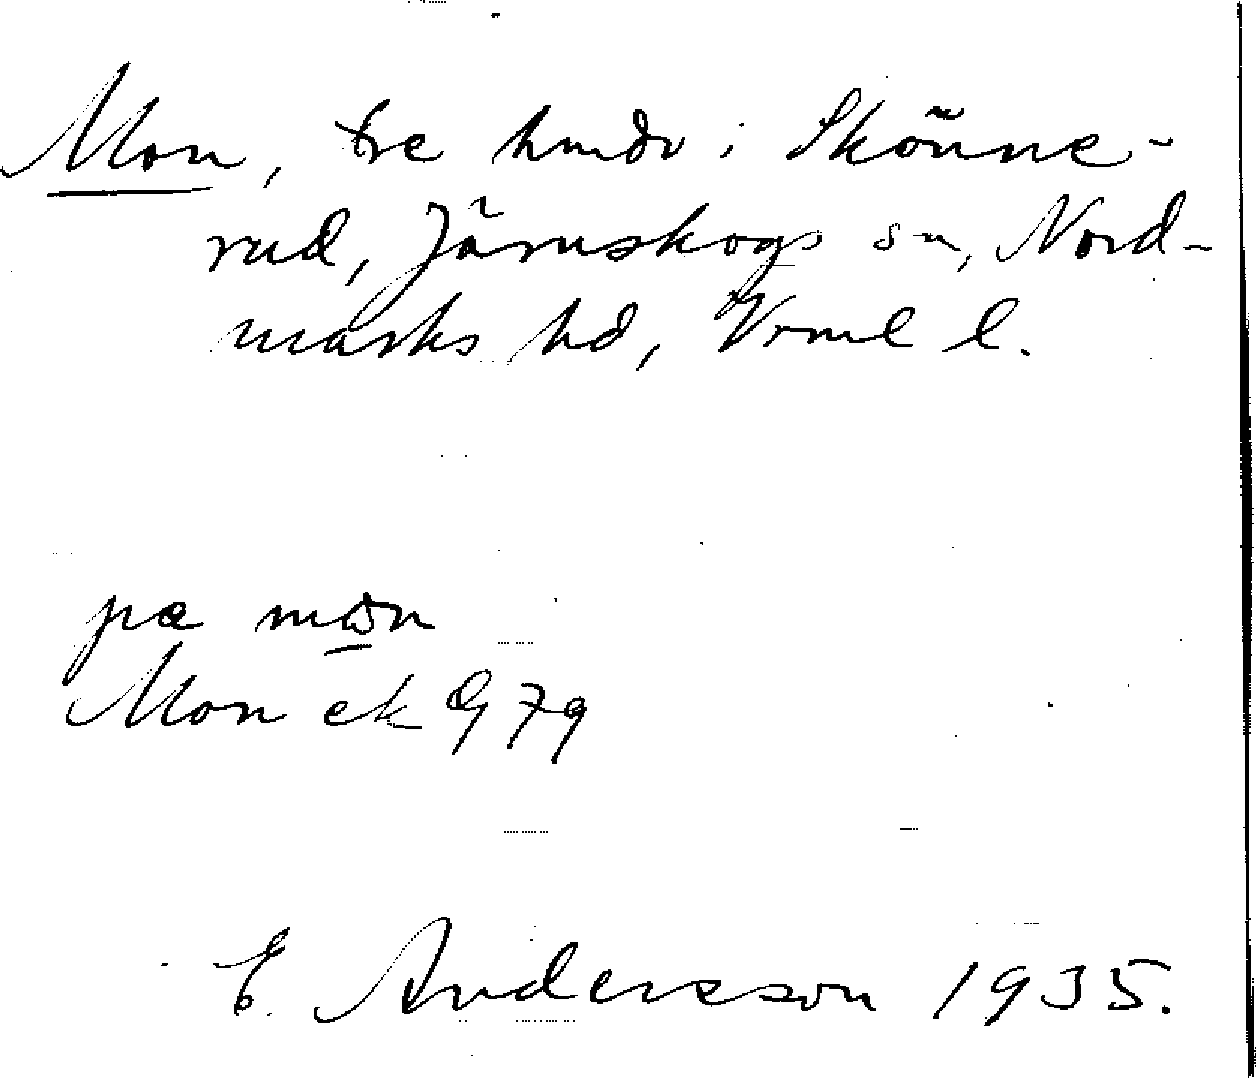 Mon, tre hmdr i Skönne-
rud, Järnskogs sn, Nord-
marks hd, Vrml l.
pæ mon
Mon ek 9 79
E. Andersson 1935.